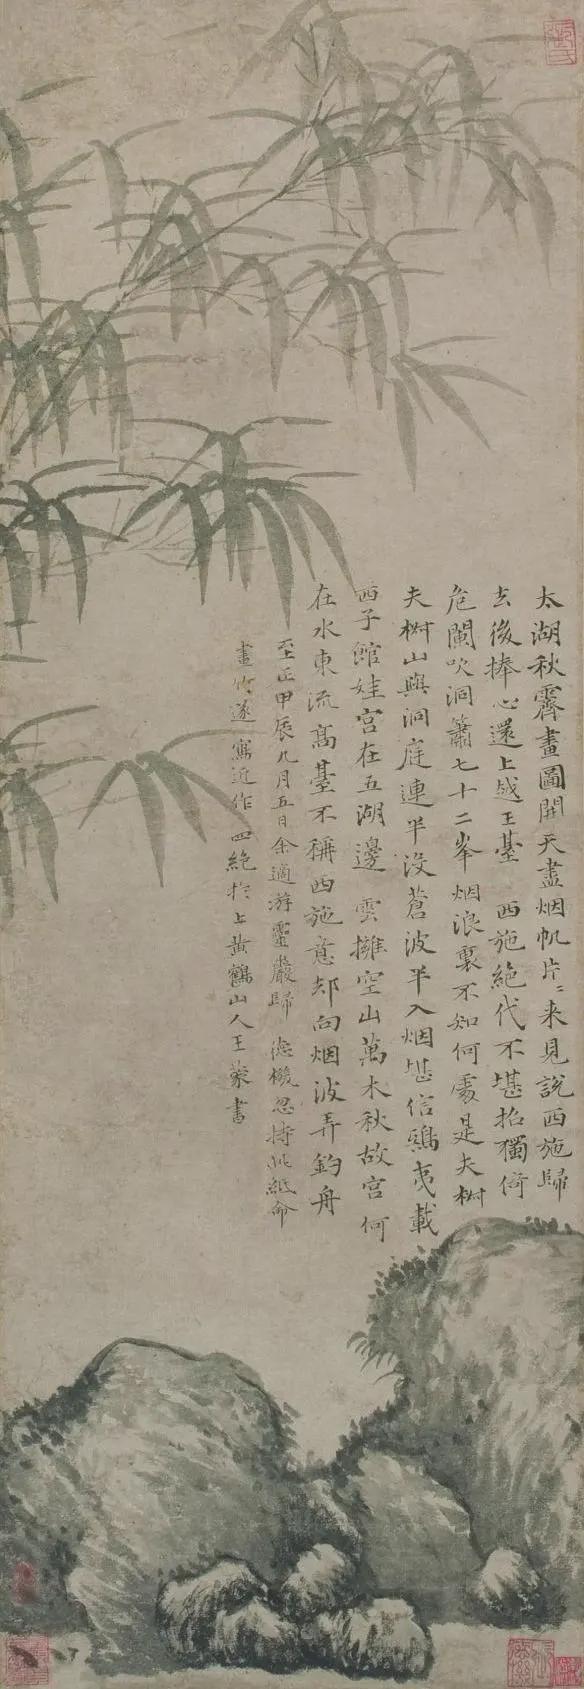 太湖秋霽畫圖開天盡烟帆片〻来見説西施歸
去後捧心還上越王臺 西施絶代不堪招獨倚
危闌吹洞簫七十二峯烟浪裏不知何處是夫椒
夫椒山與洞庭連半没蒼波半入烟堪信鴟夷載
西子館娃宮在五湖邊 雲擁空山萬木秋故宮何
在水東流高臺不稱西施意却向烟波弄釣舟
至正甲辰九月五日余適游靈巖歸 德機忽持此紙命
畫竹遂寫近作四絶於上黄鶴山人王蒙書